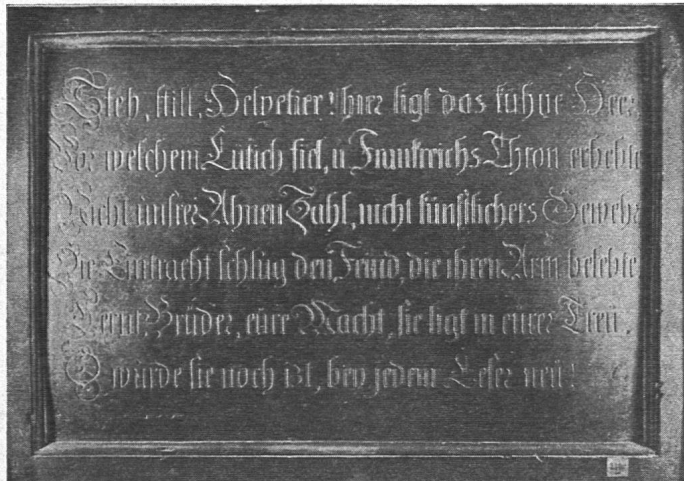 Steh, still, Helvetier! hier ligt das kühne Heer
Vor welchem Lutich fiel, u Frankreichs Thron erbebte
Nicht unsrer Ahnen Zahl, nicht künstlichers Gewehr
Die Eintracht schlug den Feind, die ihren Arm belebte
Lernt Brüder, eüre Macht, sie ligt in eürer Treü,
O würde sie noch izt, bey jedem Leser neü!